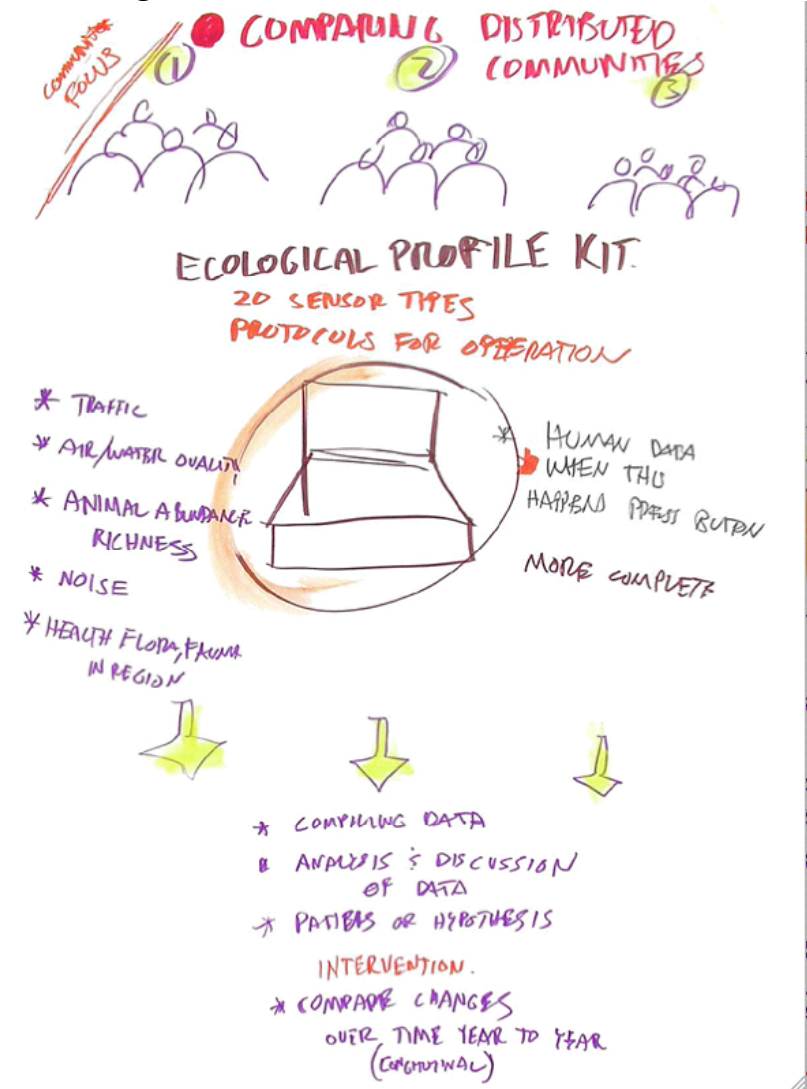 COMMUNITY
FOCUS
COMPARING DISTRIBUTED
COMMUNITIES
1
2
3
ECOLOGICAL PROFILE KIT.
20 SENSOR TYPES
PROTOCOLS FOR OPERATION
* TRAFFIC
* AIR/WATER QUALITY
* ANIMAL ABUNDANCE
RICHNESS
* NOISE
* HEALTH FLORA, FAUNA
IN REGION
* HUMAN DATA
WHEN THIS
HAPPENS PRESS BUTTON
MORE COMPLETE
* COMPILING DATA
ANALYSIS & DISCUSSION
OF DATA
* PATTERNS OR HYPOTHESIS
INTERVENTION.
* COMPARE CHANGES
OVER TIME YEAR TO YEAR
(LONGITUDINAL)